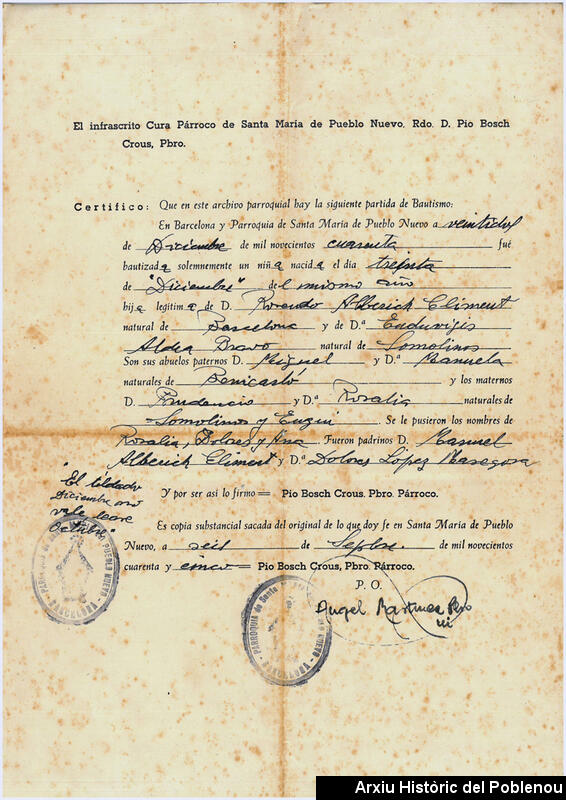 El infrascrito Cura Párroco de Santa María de Pueblo Nuevo, Rdo. D. Pio Bosch
Crous, Pbro.
Certifico: Que en este archivo parroquial hay la siguiente partida de Bautismo:
En Barcelona y Parroquia de Santa María de Pueblo Nuevo a veintidos
de Diciembre de mil novecientos cuarenta fué
bautizada solemnemente un niña nacida el día treinta
de "Diciembre" del mismo año
hija legítima de D. Rosendo Alberich Climent
natural de Barcelona y de D.ª Eduvigis
Aldea Bravo natural de Somolinos
Son sus abuelos paternos D. Miguel y D.ª Manuela
naturales de Benicarló y los maternos
D. Prudencio y D.ª Rosalia naturales de
Somolinos y Se le pusieron los nombres de
Rosalia, Dolores y Ana Fueron padrinos D. Manuel
Alberich Climent y D.ª Dolores López Masegosa
"El tildado
Diciembre no
vale, lease
Octubre"
Y por ser así lo firmo = Pio Bosch Crous. Pbro. Párroco.
Es copia substancial sacada del original de lo que doy fe en Santa María de Pueblo
Nuevo, a seis de Sepbre. de mil novecientos
cuarenta y cinco = Pio Bosch Crous, Pbro. Párroco.
P. O.
Angel Martinez Pbro
PARROQUIA de Santa María de PUEBLO NUEVO - BARCELONA
PARROQUIA de Santa María de PUEBLO NUEVO - BARCELONA
Arxiu Històric del Poblenou